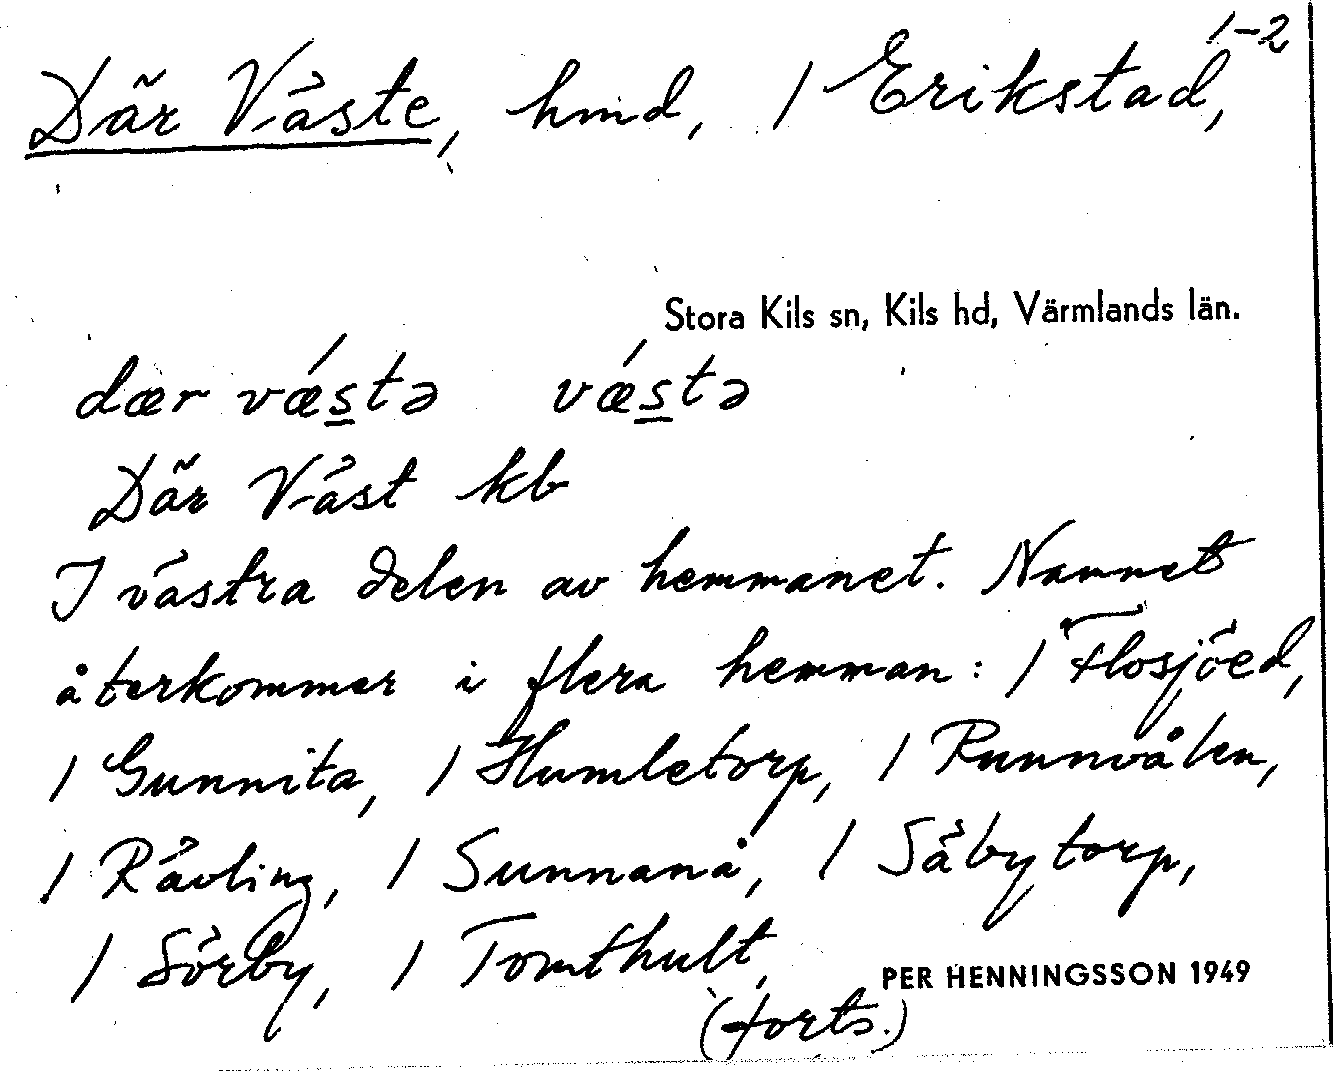 1-2
Där Väste, hmd, / Erikstad,
Stora Kils sn, Kils hd, Värmlands län.
dær vǽstə vǽstə
Där Väst kb
I västra delen av hemmanet. Namnet
återkommer i flera hemman: / Flosjöed,
/ Gunnita, / Humletorp, / Runnvålen,
/ Rävling, / Sunnanå, / Säbytorp,
/ Sörby, / Tomthult,
PER HENNINGSSON 1949
(forts.)